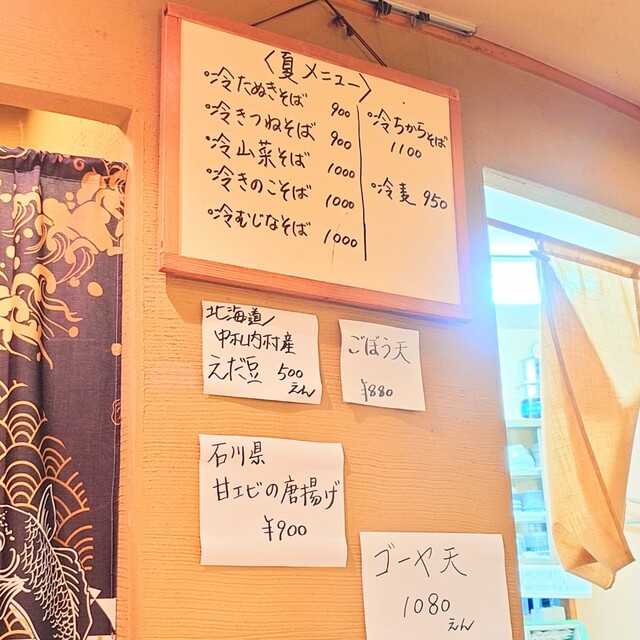 〈夏メニュー〉
・冷たぬきそば 900
・冷きつねそば 900
・冷山菜そば 1000
・冷きのこそば 1000
・冷むじなそば 1000
・冷ちからそば
1100
・冷麦 950
北海道
中札内村産
えだ豆 500
えん
ごぼう天
¥880
石川県
甘エビの唐揚げ
¥900
ゴーヤ天
1080
えん